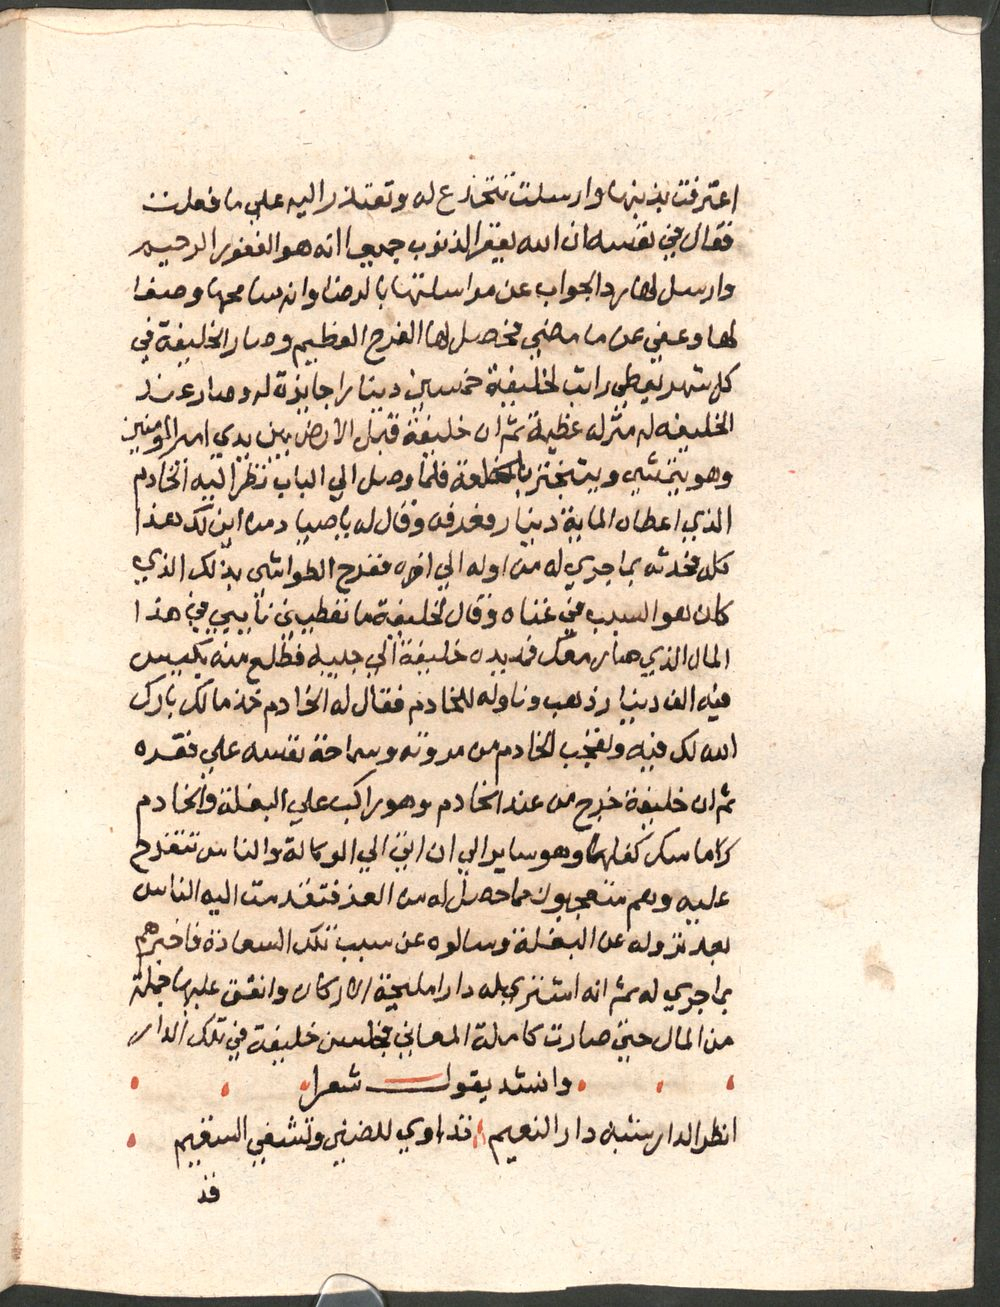 اعترفت بذنبها وارسلت تتخذع له وتعتذر اليه علي ما فعلت
فقال في نفسه ان الله يغفر الذنوب جميعا انه هو الغفور الرحيم
وارسل لها رد الجواب عن مراسلتها بالرضا وانه سامحها وصفا
لها وعفي عن ما مضي فحصل لها الفرح العظيم وصار الخليفة في
كل شهر يعطي راتب لخليفة خمسين دينارا جايزة له وصار عند
الخليفه له منزله عظيمة ثم ان خليفة قبل الارض بين يدي امير المومنين
وهو يتمشي ويتبختر بالخلعة فلما وصل الي الباب نظر اليه الخادم
الذي اعطاه الماية دينار فعرفه وقال له يا صياد من اين لك هذا
كله فحدثه بما جري له من اوله الي اخره ففرح الطواشي بذلك الذي
كان هو السبب في غناه وقال لخليفة ما تعطيني نايبي في هذا
المال الذي صار معك فمد يده خليفة الي جيبه فطلع منه بكيس
فيه الف دينار ذهب وناوله للخادم فقال له الخادم خذ مالك بارك
الله لك فيه وتعجب الخادم من مروته وسماحة نفسه علي فقره
ثم ان خليفة خرج من عند الخادم وهو راكب علي البغلة والخادم
ماسك كفلها وهو ساير الي ان اتي الي الوكالة والناس تتفرج
عليه وهم متعجبون مما حصل له من العز فتقدمت اليه الناس
بعد نزوله عن البغلة وسالوه عن سبب تلك السعادة فاخبرهم
بما جري له ثم انه اشتري له دارا مليحة الاركان وانفق عليها جملة
من المال حتي صارت كاملة المعاني فجلس خليفة في تلك الدار
وانشد يقول شعرا
انظر الدار شبه دار النعيم قد داوي للضني وتشفي السقيم
قد